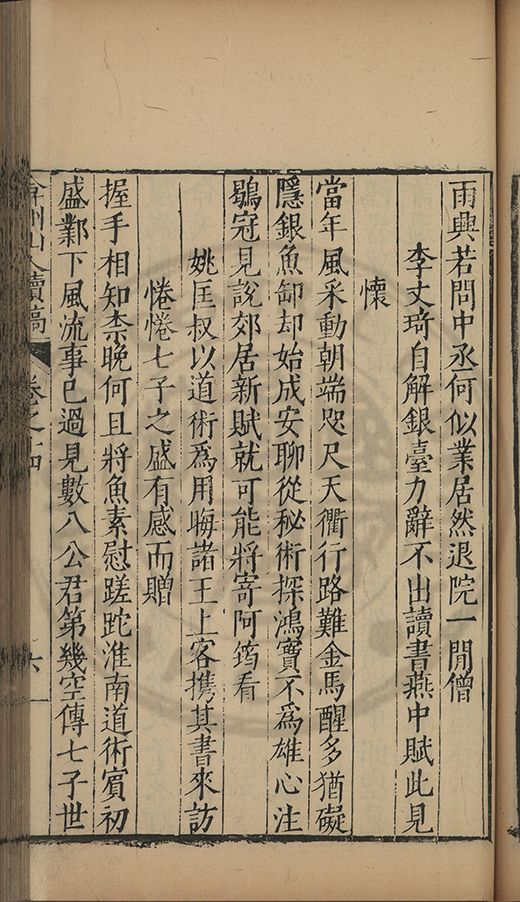 雨興若問中丞何似業居然退院一閒僧
李丈琦自解銀臺力辭不出讀書燕中賦此見
懷
當年風采動朝端咫尺天衢行路難金馬醒多猶礙
隱銀魚卸却始成安聊從秘術探鴻寶不爲雄心注
鶡冠見說郊居新賦就可能將寄阿筠看
姚匡叔以道術爲用晦諸王上客携其書來訪
惓惓七子之盛有感而贈
握手相知柰晚何且將魚素慰蹉跎淮南道術賓初
盛鄴下風流事已過見數八公君第幾空傳七子世
弇州山人續稿 卷之十四 六